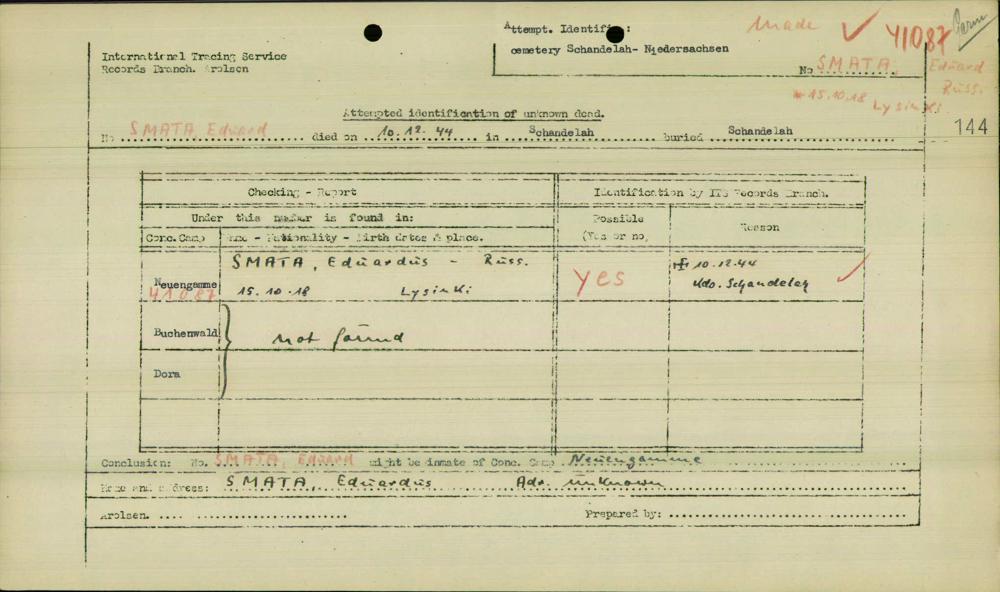 Attempt. Identific:
cemetery Schandelah- Niedersachsen
made ✓ 41087
No SMATA, Eduard
Russ.
* 15.10.18 Lysinki
144
International Tracing Service
Records Branch. Arolsen
Attempted identification of unknown dead.
No SMATA, Eduard died on 10.12.44 in Schandelah buried Schandelah
Checking - Report
Identification by ITS Records Branch.
Under this number is found in:
Possible
(Yes or no)
Reason
Conc.Camp
Name - Nationality - Birth dates & place.
Neuengamme
41087
SMATA, Eduardus - Russ.
15.10.18 Lysinki
yes
10.12.44
Kdo. Schandelah ✓
Buchenwald
not found
Dora
Conclusion: No. SMATA, Eduard might be inmate of Conc. Camp Neuengamme
Name and address: SMATA Eduardus Adr. unknown
Arolsen.
Prepared by: